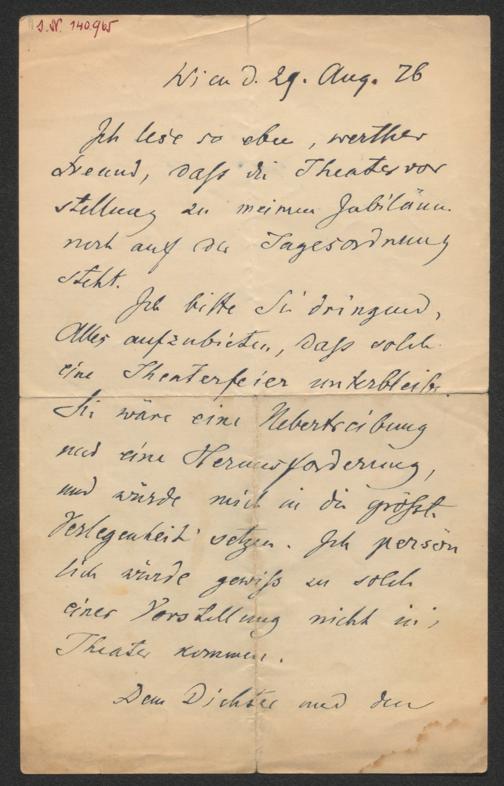 J.N. 140.965
Wien d. 29. Aug. 76
Ich lese so eben, werther
Freund, daß die Theatervor
stellung zu meinem Jubiläum
noch auf der Tagesordnung
steht.
Ich bitte Sie dringend,
Alles aufzubieten, daß solch
eine Theaterfeier unterbleibe.
Sie wäre eine Uebertreibung
und eine Herausforderung,
und würde mich in die größte
Verlegenheit setzen. Ich persön
lich würde gewiß zu solch
einer Vorstellung nicht in's
Theater kommen.
Dem Dichter und den